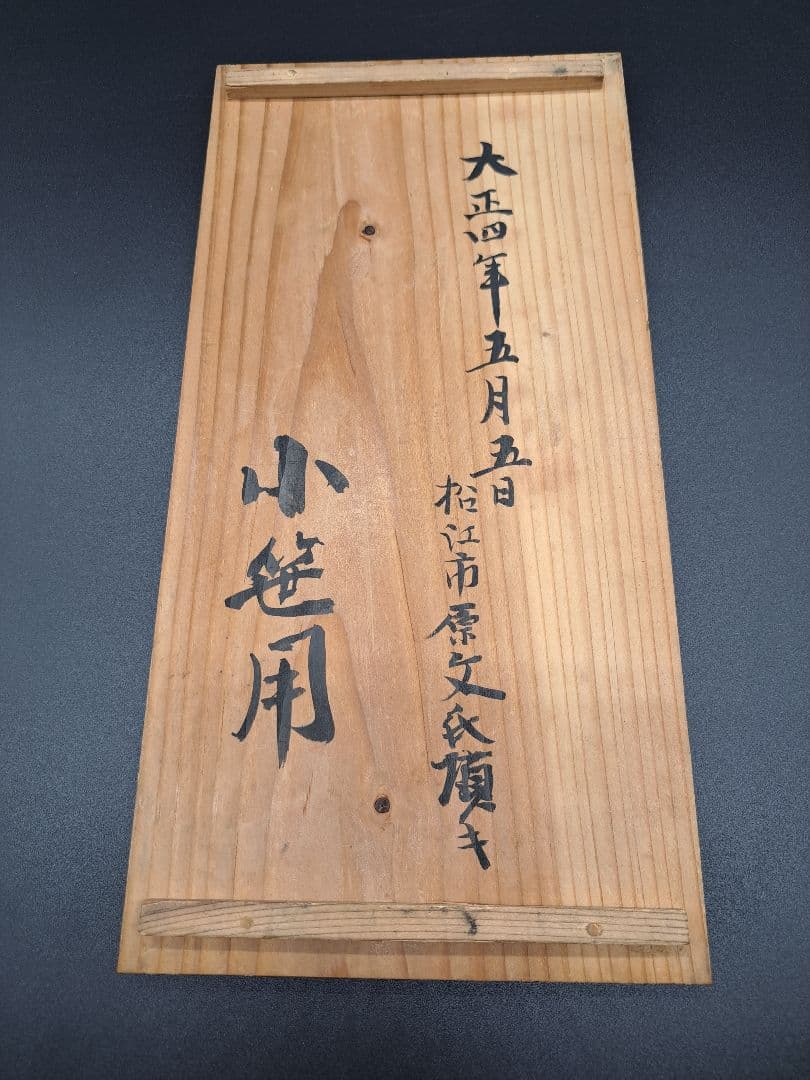 大正四年五月五日
松江市原文氏頂き
小笹用